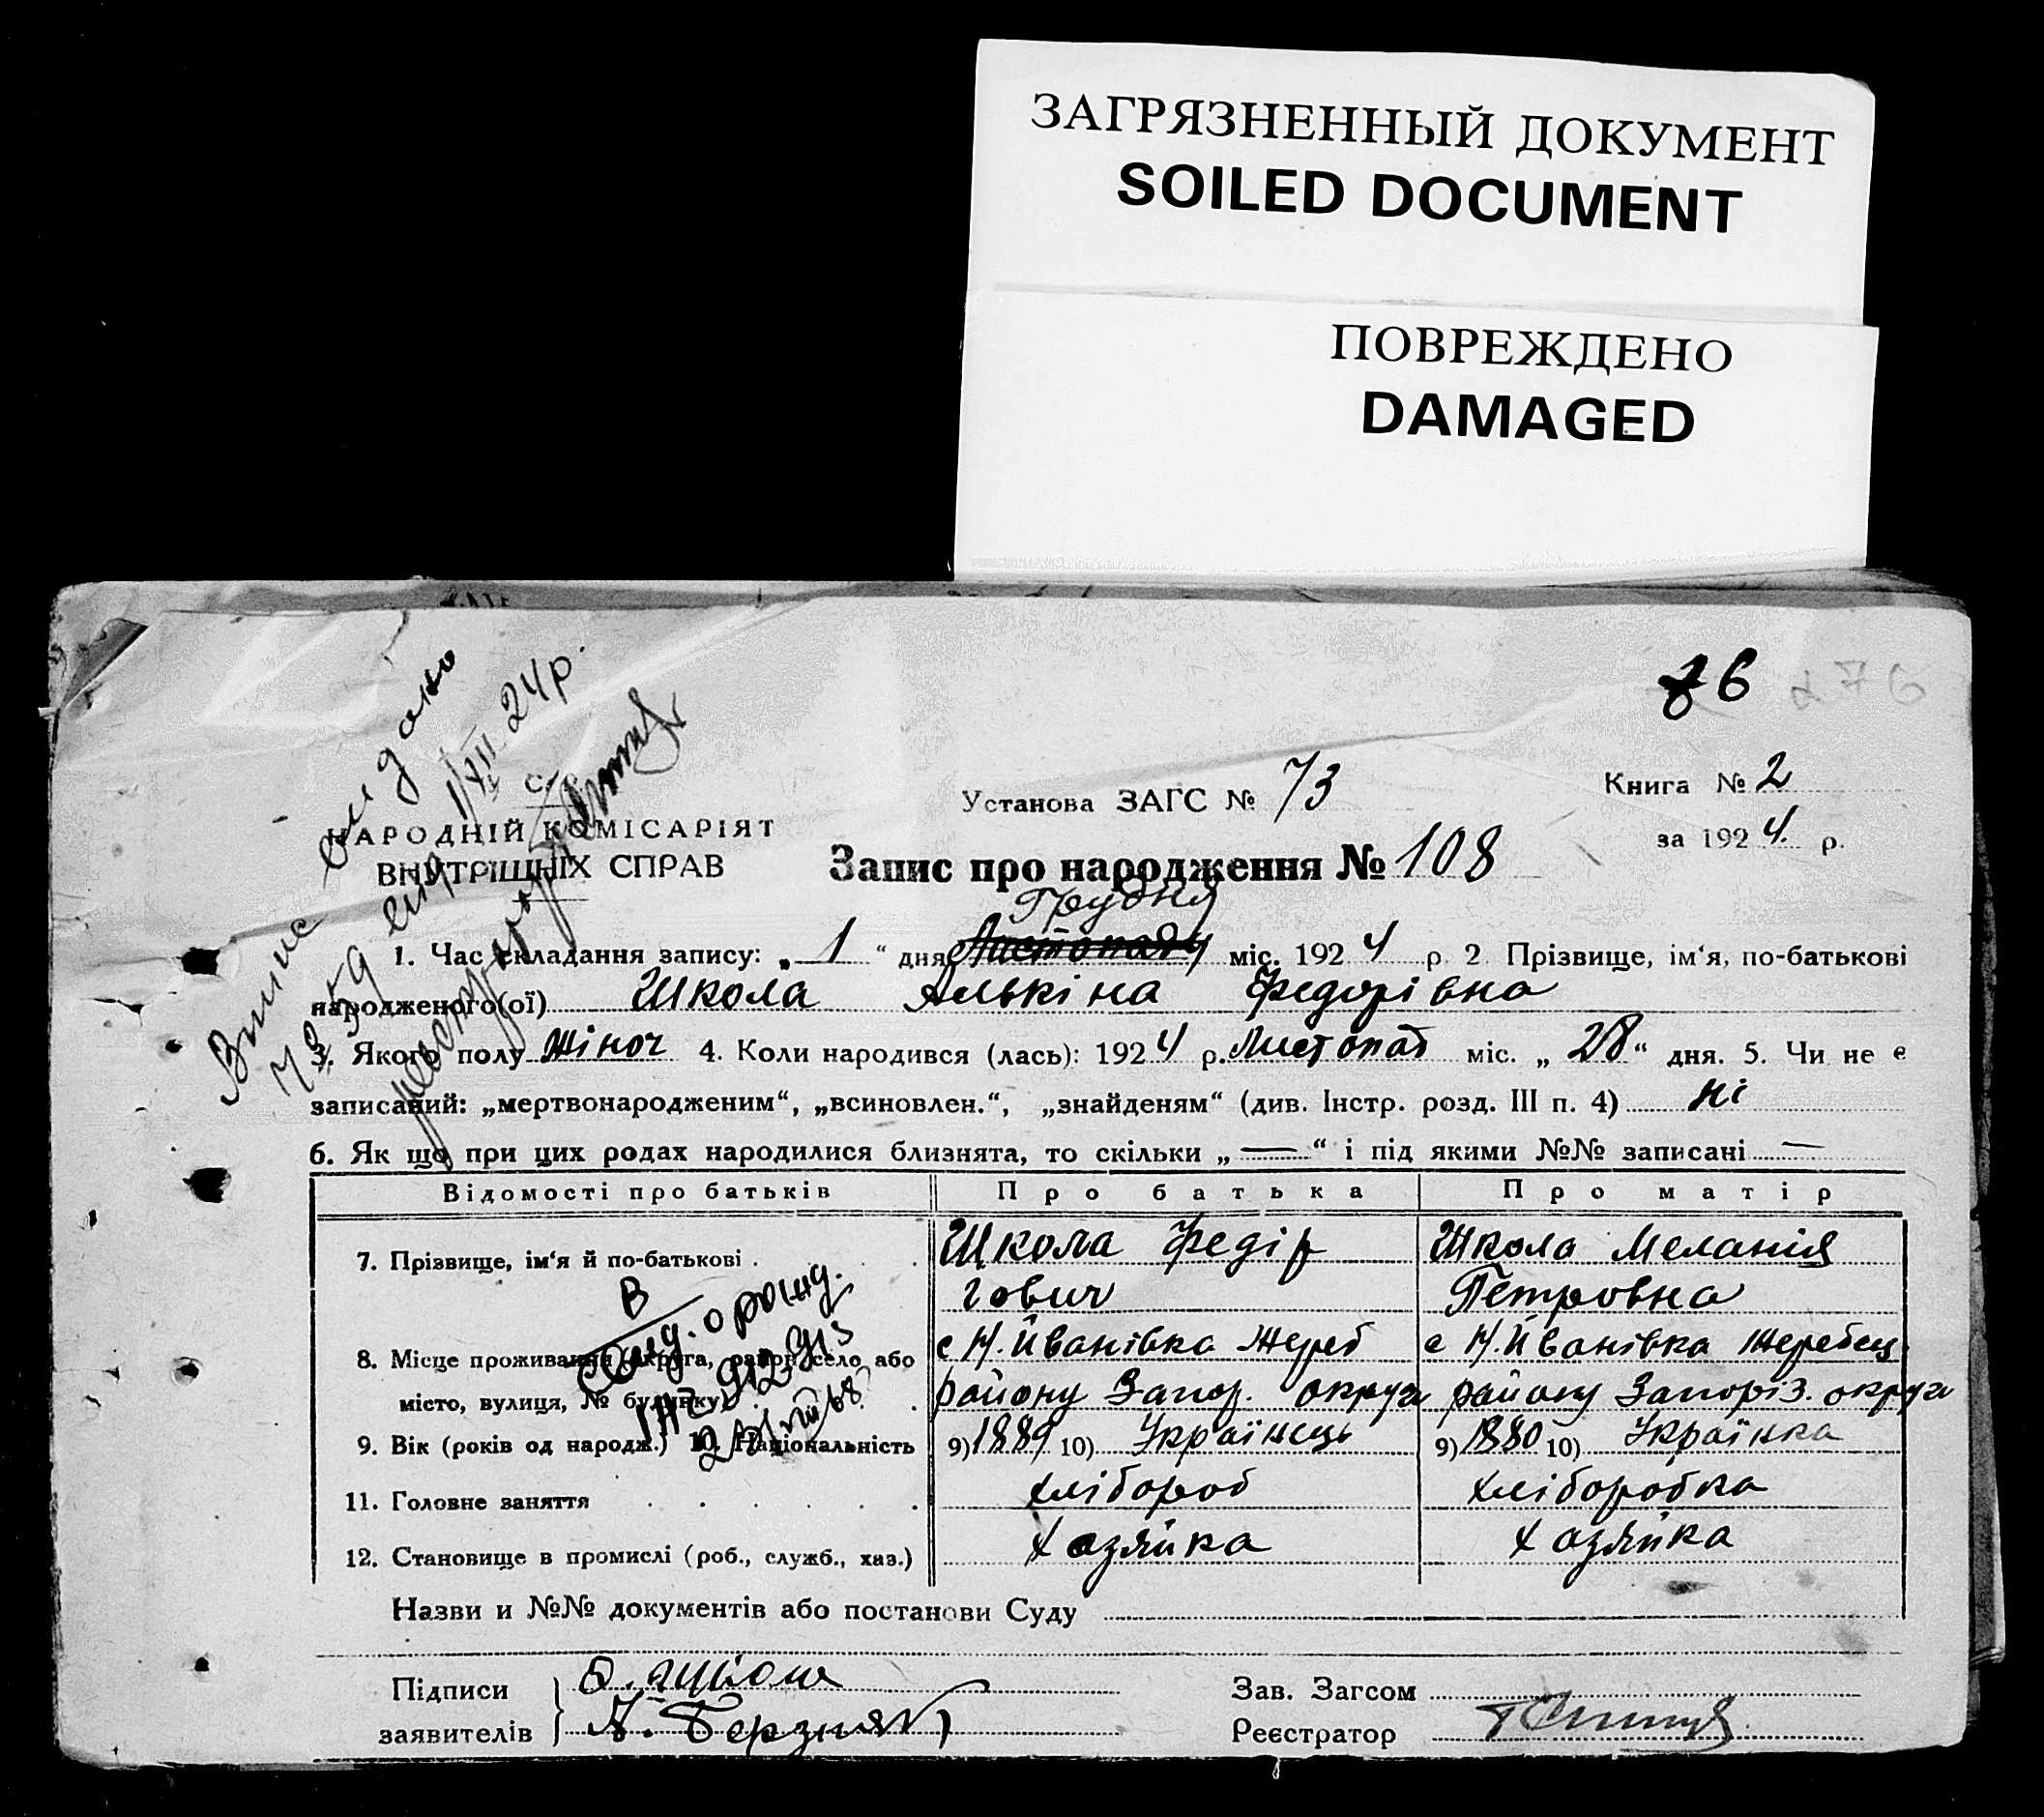 ЗАГРЯЗНЕННЫЙ ДОКУМЕНТ
SOILED DOCUMENT
ПОВРЕЖДЕНО
DAMAGED
76
276
Випис видано
1/XII 24р.
С.
НАРОДНІЙ КОМІСАРІЯТ
ВНУТРІШНІХ СПРАВ
Установа ЗАГС № 73
Книга № 2
за 1924 р.
Запис про народження № 108
Грудня
1. Час складання запису: „1“ дня Листопаду міс. 1924 р 2. Прізвище, ім‘я, по-батькові
народженого(ої) Школа Алькіна Федорівна
3. Якого полу жіноч 4. Коли народився (лась): 1924 р. Листопад міс. „28“ дня. 5. Чи не є
записаний: „мертвонародженим“, „всиновлен.“, „знайденям“ (див. Інстр. розд. III п. 4) ні
6. Як що при цих родах народилися близнята, то скільки „—“ і під якими №№ записані —
Відомості про батьків Про батька Про матір
7. Прізвище, ім‘я й по-батькові . . Школа Федір Школа Меланія
гович Петровна
8. Місце проживання округа, район, село або с Н. Йванівка Жереб с Н. Йванівка Жеребец.
місто, вулиця, № будинку . . району Запор. округи району Запоріз. округи
9. Вік (років од народж.) 10. Національність 9) 1889 10) Українець 9) 1880 10) Українка
11. Головне заняття . . . . . . хлібороб хліборобка
12. Становище в промислі (роб., служб., хаз.) хозяйка хозяйка
Назви и №№ документів або постанови Суду
Підписи
заявителів
Зав. Загсом
Реєстратор